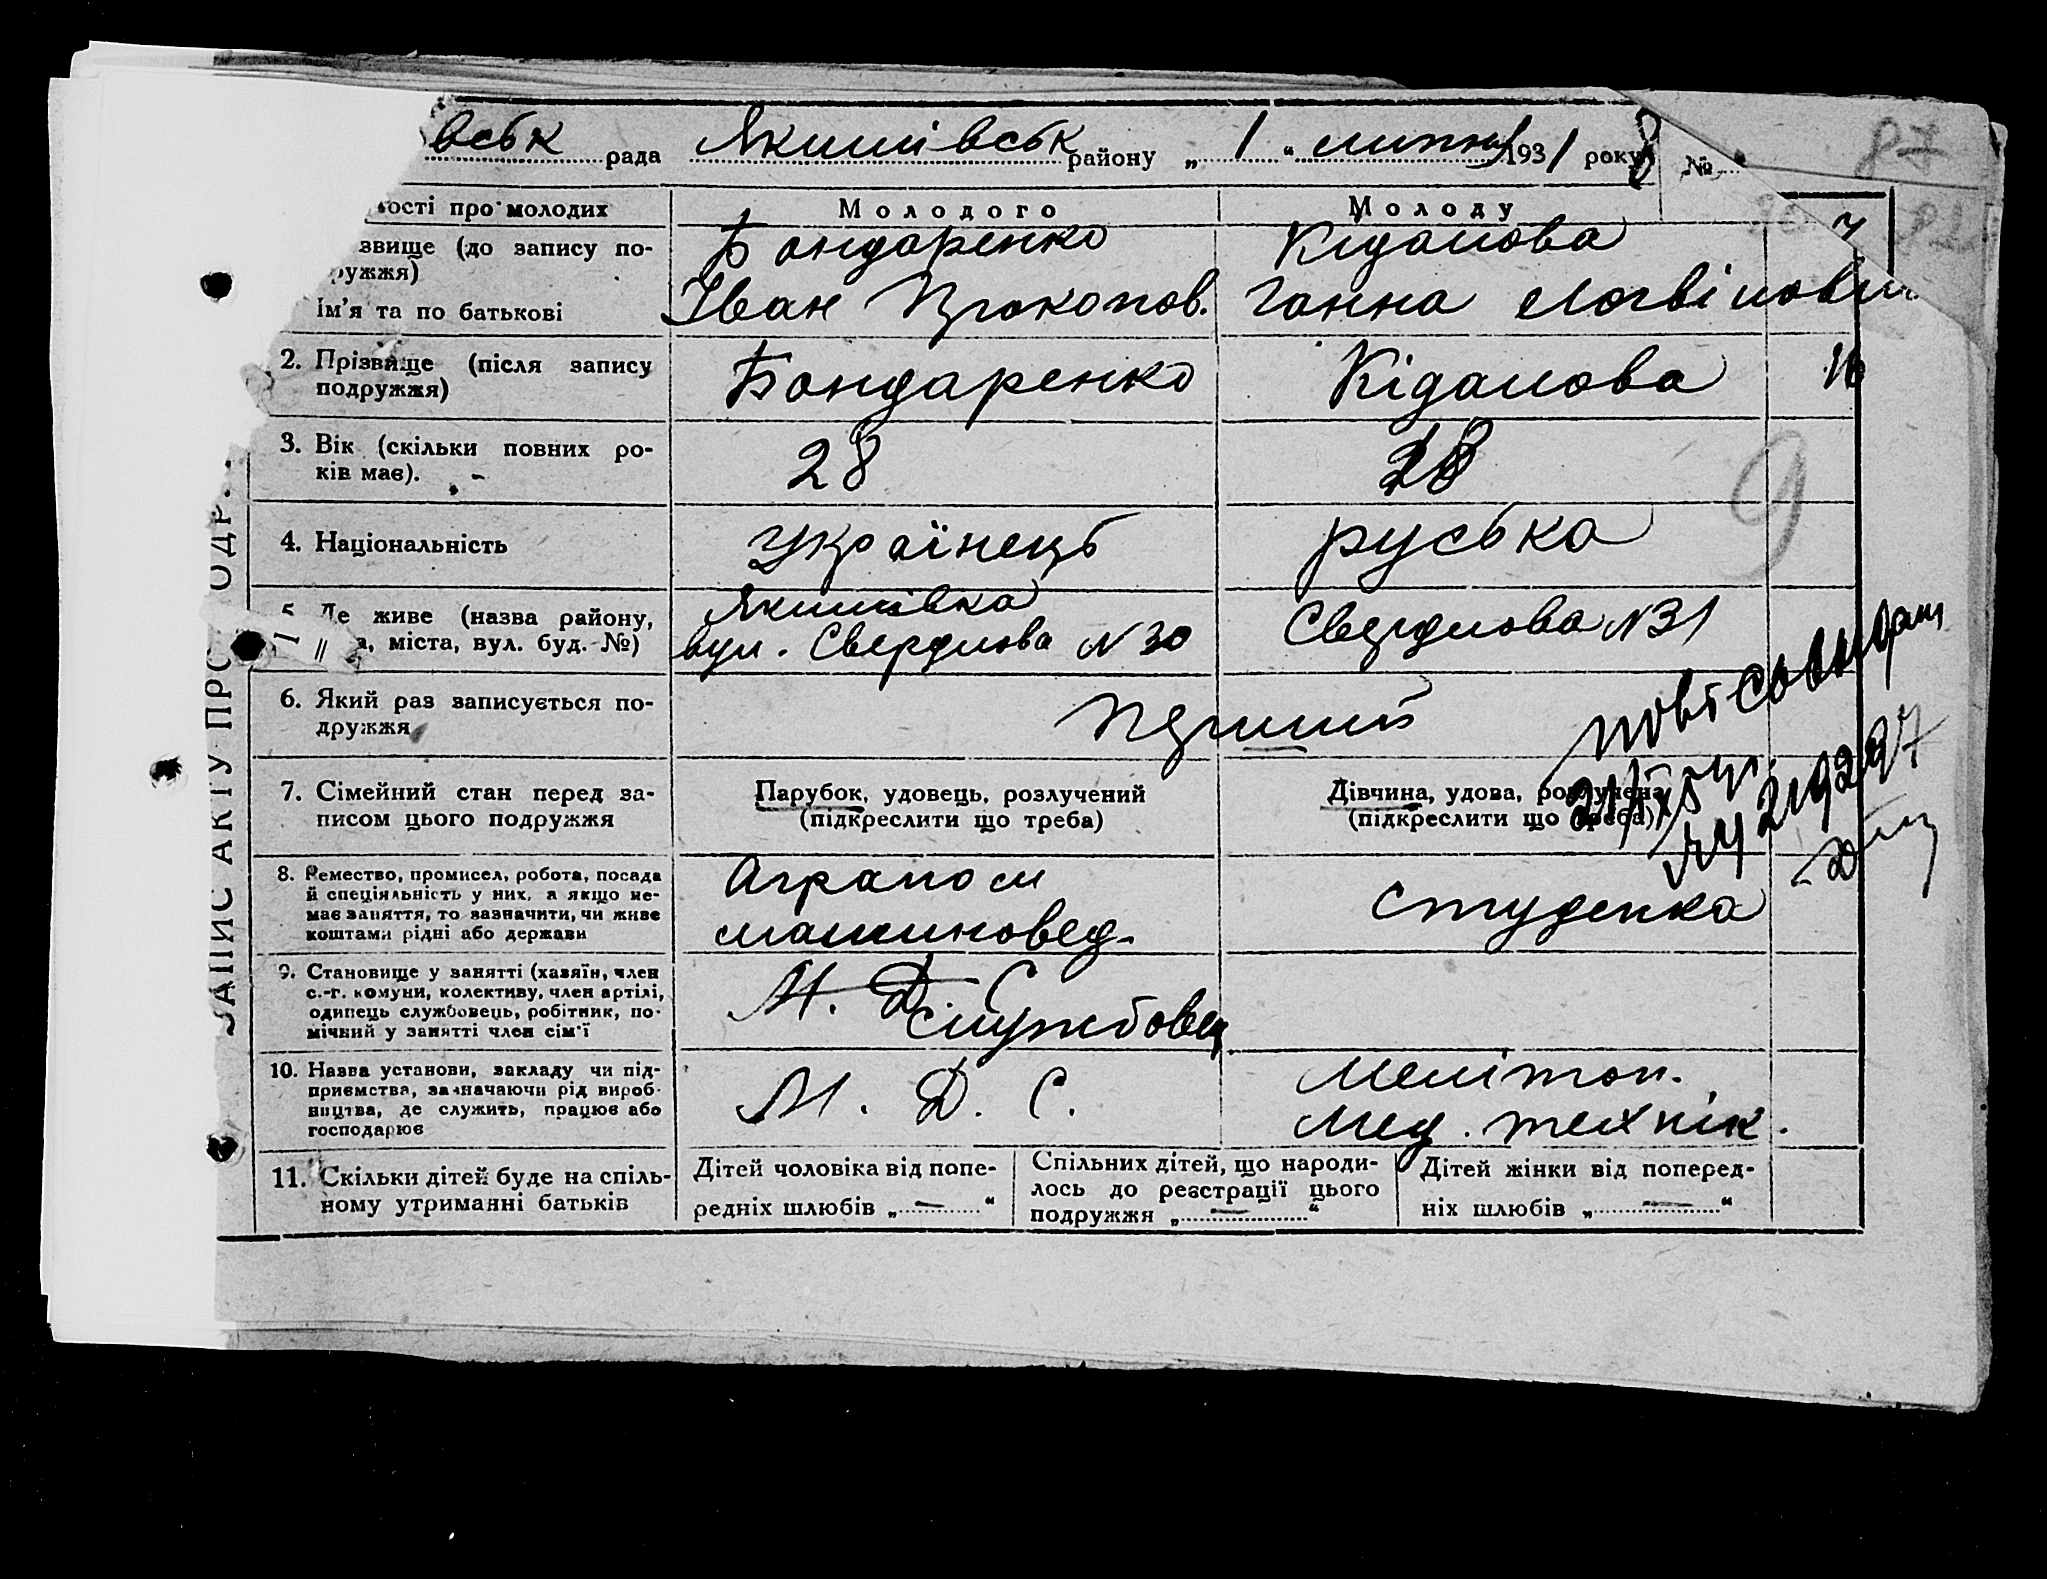 вськ рада Якимівськ району „ 1 “ липня 1931 року №
87
ості про молодих Молодого Молоду
звище (до запису по- Бондаренко Кідалова
ружжя)
Ім'я та по батькові Іван Прокопов. Ганна Логвіновн
2. Прізвище (після запису Бондаренко Кідалова
подружжя)
3. Вік (скільки повних ро- 28
ків має).
9
4. Національність Українець руська
5. Де живе (назва району, Якимівка Свердлова N 31
а, міста, вул. буд. №) вул. Свердлова N 30
6. Який раз записується по- перший
дружжя
7. Сімейний стан перед за- Парубок, удовець, розлучений Дівчина, удова, розлучена
писом цього подружжя (підкреслити що треба) (підкреслити що треба)
8. Ремество, промисел, робота, посада Аграном студенка
й спеціяльність у них, а якщо не-
має заняття, то зазначити, чи живе машиновед.
коштами рідні або держави
9. Становище у занятті (хазяїн, член М. Д. С
с.-г. комуни, колективу, член артілі,
одинець службовець, робітник, по- службовец
мічний у занятті член сім'ї
10. Назва установи, закладу чи під- М. Д. С. Меліттоп.
приємства, зазначаючи рід вироб-
ництва, де служить, працює або Мед. технік.
господарює
11. Скільки дітей буде на спіль- Дітей чоловіка від попе- Спільних дітей, що народи- Дітей жінки від поперед-
ному утриманні батьків редніх шлюбів „ — “ лось до реєстрації цього ніх шлюбів „ — “
подружжя „ — “
ЗАПИС АКТУ ПРО ОДР